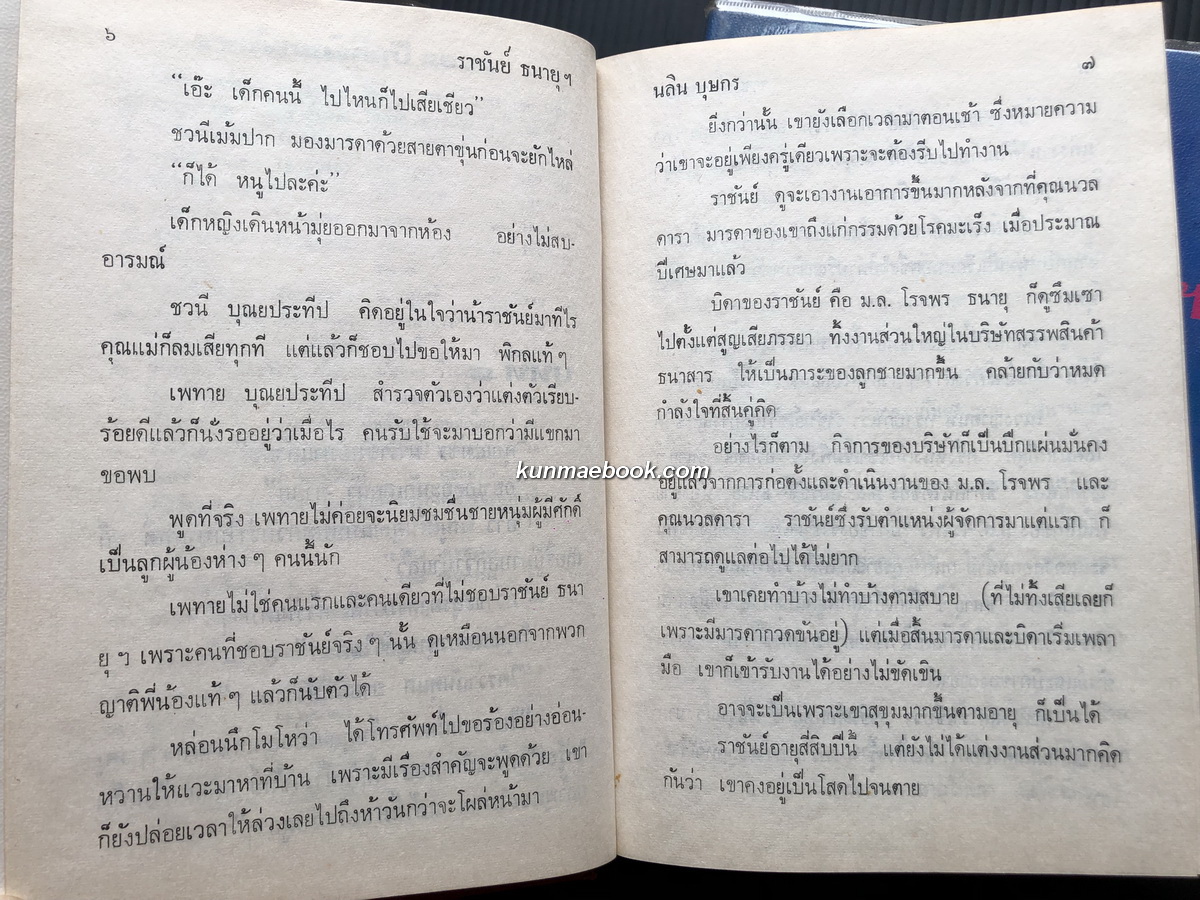 ๖
ราชันย์ ธนายุฯ
“เอ๊ะ เด็กคนนี้ ไปไหนก็ไปเสียเซียว”
ชวนีเม้มปาก มองมารดาด้วยสายตาขุ่นก่อนจะยักไหล่
“ก็ได้ หนูไปละค่ะ”
เด็กหญิงเดินหน้ามุ่ยออกมาจากห้อง อย่างไม่สบ-
อารมณ์
ชวนี บุณยประทีป คิดอยู่ในใจว่าน้าราชันย์มาทีไร
คุณแม่ก็ลมเสียทุกที แต่แล้วก็ชอบไปขอให้มา พิกลแท้ๆ
เพทาย บุณยประทีป สำรวจตัวเองว่าแต่งตัวเรียบ-
ร้อยดีแล้วก็นั่งรออยู่ว่าเมื่อไร คนรับใช้จะมาบอกว่ามีแขกมา
ขอพบ
พูดที่จริง เพทายไม่ค่อยจะนิยมชมชื่นชายหนุ่มผู้มีศักดิ์
เป็นลูกผู้น้องห่าง ๆ คนนั้นนัก
เพทายไม่ใช่คนแรกและคนเดียวที่ไม่ชอบราชันย์ ธนา
ยุฯ เพราะคนที่ชอบราชันย์จริง ๆ นั้น ดูเหมือนนอกจากพวก
ญาติพี่น้องแท้ ๆ แล้วก็นับตัวได้
หล่อนนึกโมโหว่า ได้โทรศัพท์ไปขอร้องอย่างอ่อน-
หวานให้แวะมาหาที่บ้าน เพราะมีเรื่องสำคัญจะพูดด้วย เขา
ก็ยังปล่อยเวลาให้ล่วงเลยไปถึงห้าวันกว่าจะโผล่หน้ามา
นลิน บุษกร
๗
ยิ่งกว่านั้น เขายังเลือกเวลามาตอนเช้า ซึ่งหมายความ
ว่าเขาจะอยู่เพียงครู่เดียวเพราะจะต้องรีบไปทำงาน
ราชันย์ ดูจะเอางานเอาการขึ้นมากหลังจากที่คุณนวล
ดารา มารดาของเขาถึงแก่กรรมด้วยโรคมะเร็ง เมื่อประมาณ
ปีเศษมาแล้ว
บิดาของราชันย์ คือ ม.ล. โรจพร ธนายุ ก็ดูซึมเซา
ไปตั้งแต่สูญเสียภรรยา ทิ้งงานส่วนใหญ่ในบริษัทสรรพสินค้า
ธนาสาร ให้เป็นภาระของลูกชายมากขึ้น คล้ายกับว่าหมด
กำลังใจที่สิ้นคู่คิด
อย่างไรก็ตาม กิจการของบริษัทก็เป็นปึกแผ่นมั่นคง
อยู่แล้วจากการก่อตั้งและดำเนินงานของ ม.ล. โรจพร และ
คุณนวลดารา ราชันย์ซึ่งรับตำแหน่งผู้จัดการมาแต่แรก ก็
สามารถดูแลต่อไปได้ไม่ยาก
เขาเคยทำบ้างไม่ทำบ้างตามสบาย (ที่ไม่ทิ้งเสียเลยก็
เพราะมีมารดากวดขันอยู่) แต่เมื่อสิ้นมารดาและบิดาเริ่มเพลา
มือ เขาก็เข้ารับงานได้อย่างไม่ขัดเขิน
อาจจะเป็นเพราะเขาสุขุมมากขึ้นตามอายุ ก็เป็นได้
ราชันย์อายุสี่สิบปีนี้ แต่ยังไม่ได้แต่งงานส่วนมากคิด
กันว่า เขาคงอยู่เป็นโสดไปจนตาย
kunmaebook.com